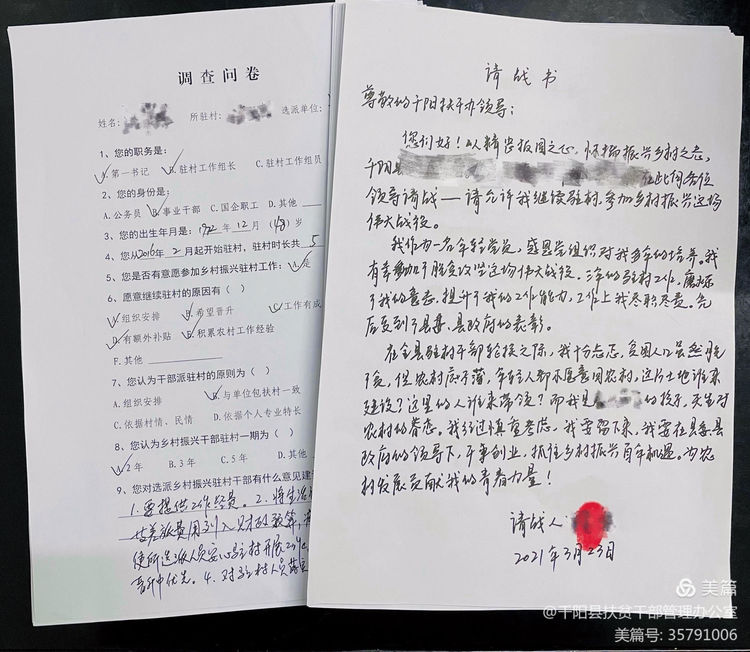 调查问卷
姓名: 所驻村: 选派单位:
1、您的职务是:
A.第一书记 B.驻村工作组长 C.驻村工作组员
2、您的身份是:
A.公务员 B.事业干部 C.国企职工 D.其他
3、您的出生年月是: 12月 岁
4、您从2016年2月起开始驻村,驻村时长共 5
5、您是否有意愿参加乡村振兴驻村工作: A.是
6、愿意继续驻村的原因有( )
A.组织安排 B.希望晋升 C.工作有成
D.有额外补贴 E.积累农村工作经验
F.其他
7、您认为干部派驻村的原则为( )
A.组织安排 B.与单位包扶村一致
C.依据村情、民情 D.依据个人专业特长
8、您认为乡村振兴干部驻村一期为( )
A.2年 B.3年 C.5年 D.其他
9、您对选派乡村振兴驻村干部有什么意见建
1.要提供工作经费。2.将生活
差旅费用列入财政预算,
使所选派人员安心驻村开展工作
优先。4.对驻村人员
请战书
尊敬的千阳扶干办领导:
您们好!以精忠报国之心,怀揣振兴乡村之志,
千阳县 在此向各位
领导请战——请允许我继续驻村,参加乡村振兴这场
伟大战役。
我作为一名年轻党员,感恩党组织对我多年的培养。我
有幸参加了脱贫攻坚这场伟大战役。三年的驻村工作,磨练
了我的意志,提升了我的工作能力,工作上我尽职尽责。先
后受到了县委、县政府的表彰。
在全县驻村干部轮换之际,我十分忐忑,贫困人口虽然脱
了贫,但农村底子薄,年轻人都不愿意回农村,这片土地谁来
建设?这里的人谁来带领?而我是 的孩子,天生对
农村的眷恋。我经过慎重考虑,我要留下来,我要在县委、县
政府的领导下,干事创业,抓住乡村振兴百年机遇。为农
村发展贡献我的青春力量!
请战人:
2021年3月23日
美篇
@千阳县扶贫干部管理办公室
美篇号: 35791006